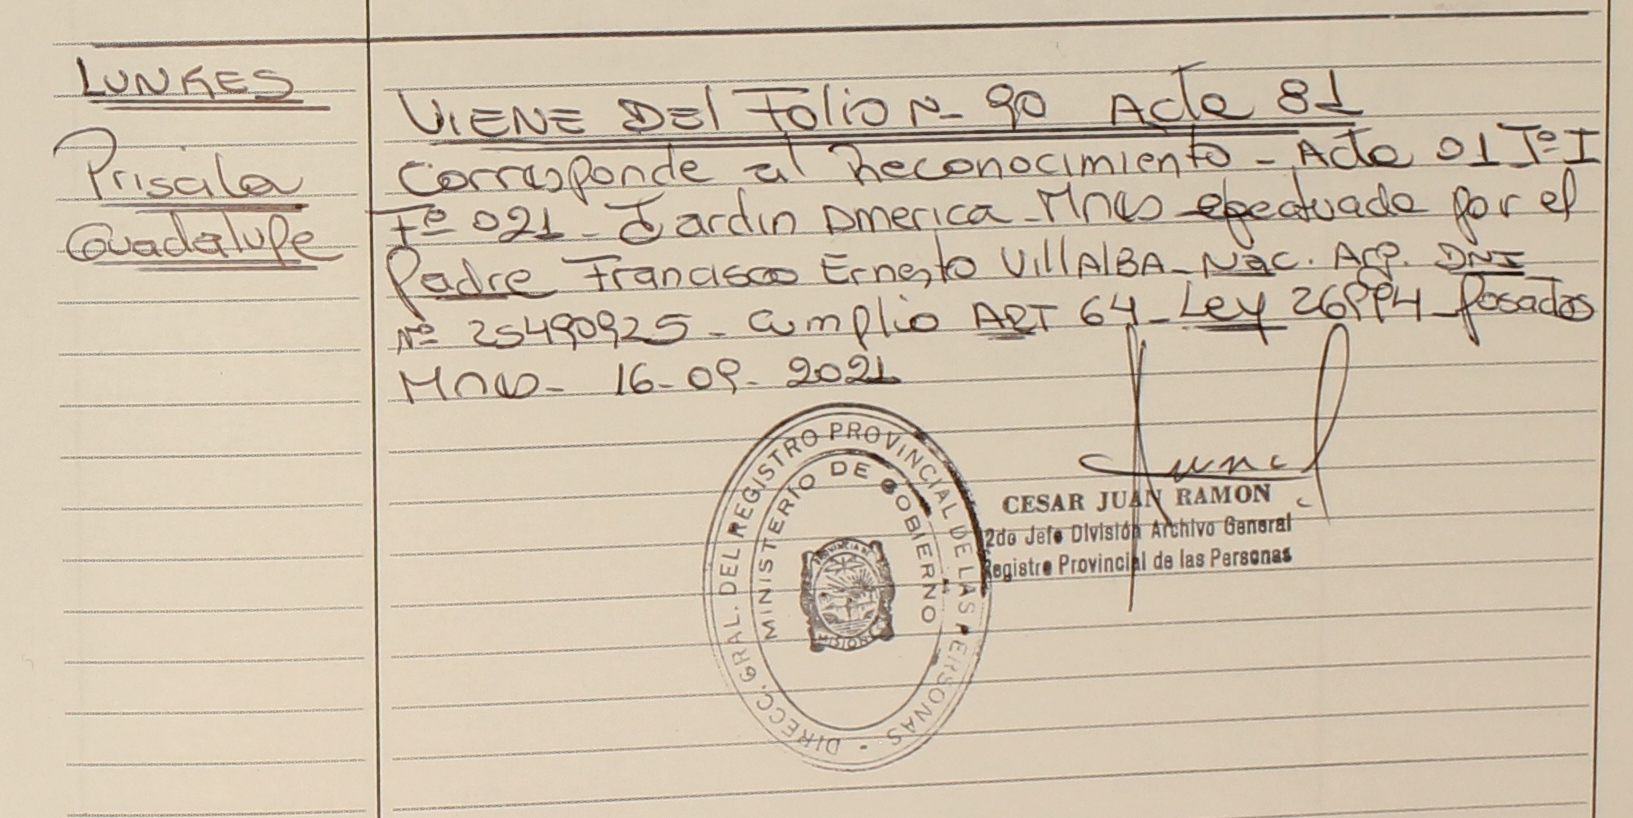 LUNKES
Priscila
Guadalupe
VIENE DEL Folio N- 90 Acta 81
Corresponde al Reconocimiento - Acta 01 Tº I
Fº 021 - Jardin America - Mnes efectuada por el
Padre Francisco Ernesto VillALBA - Nac. Arg. DNI
Nº 25490925 - Cumplio ART 64 - Ley 26994 - Posadas
Mnes - 16-09-2021
DIRECC. GRAL. DEL REGISTRO PROVINCIAL DE LAS PERSONAS -
MINISTERIO DE GOBIERNO
PROVINCIA DE
MISIONES
CESAR JUAN RAMON
2do Jefe División Archivo General
Registro Provincial de las Personas